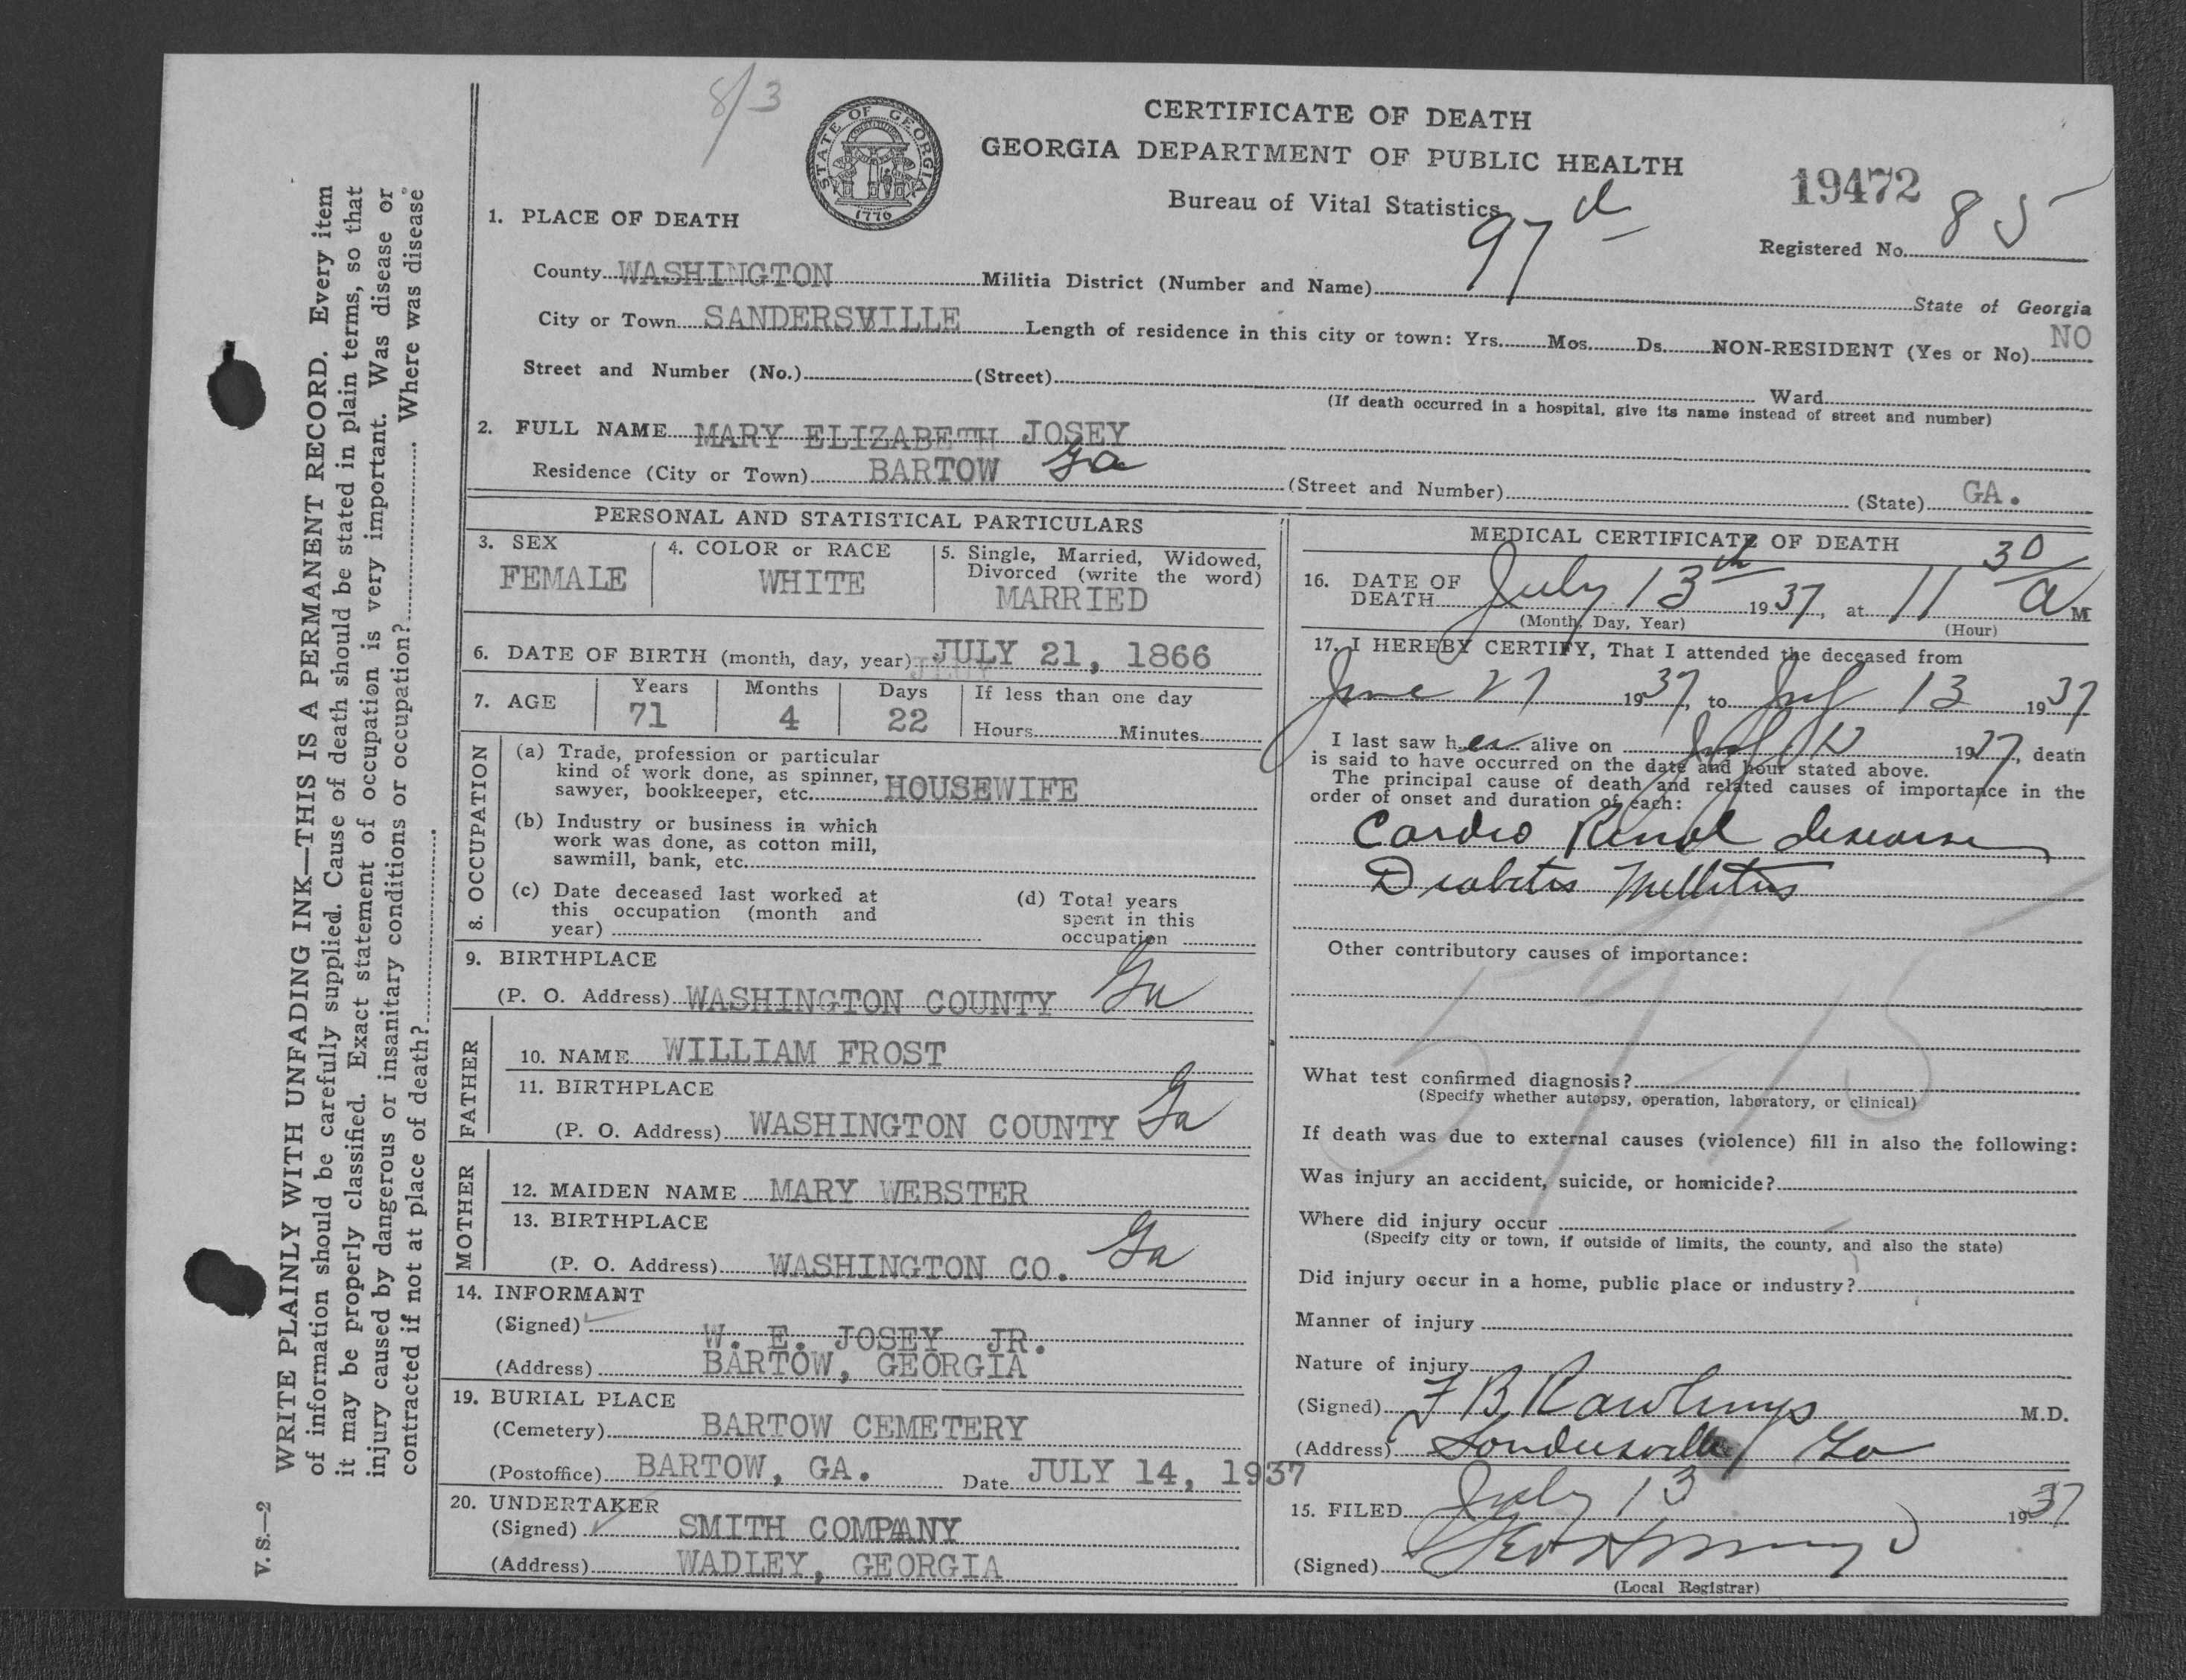 8/3
STATE OF GEORGIA
1776
CERTIFICATE OF DEATH
GEORGIA DEPARTMENT OF PUBLIC HEALTH
Bureau of Vital Statistics
19472
97 d
Registered No. 85
1. PLACE OF DEATH
County WASHINGTON Militia District (Number and Name) State of Georgia
City or Town SANDERSVILLE Length of residence in this city or town: Yrs. Mos. Ds. NON-RESIDENT (Yes or No) NO
Street and Number (No.) (Street) Ward
(If death occurred in a hospital, give its name instead of street and number)
2. FULL NAME MARY ELIZABETH JOSEY
Residence (City or Town) BARTOW Ga (Street and Number) (State) GA.
PERSONAL AND STATISTICAL PARTICULARS
3. SEX
FEMALE
4. COLOR or RACE
WHITE
5. Single, Married, Widowed,
Divorced (write the word)
MARRIED
6. DATE OF BIRTH (month, day, year) JULY 21, 1866
7. AGE
Years
71
Months
4
Days
22
If less than one day
Hours Minutes
8. OCCUPATION
(a) Trade, profession or particular
kind of work done, as spinner,
sawyer, bookkeeper, etc. HOUSEWIFE
(b) Industry or business in which
work was done, as cotton mill,
sawmill, bank, etc.
(c) Date deceased last worked at
this occupation (month and
year)
(d) Total years
spent in this
occupation
9. BIRTHPLACE
(P. O. Address) WASHINGTON COUNTY Ga
FATHER
10. NAME WILLIAM FROST
11. BIRTHPLACE
(P. O. Address) WASHINGTON COUNTY Ga
MOTHER
12. MAIDEN NAME MARY WEBSTER
13. BIRTHPLACE
(P. O. Address) WASHINGTON CO. Ga
14. INFORMANT
(Signed) W. E. JOSEY JR.
(Address) BARTOW, GEORGIA
19. BURIAL PLACE
(Cemetery) BARTOW CEMETERY
(Postoffice) BARTOW, GA. Date JULY 14, 1937
20. UNDERTAKER
(Signed) SMITH COMPANY
(Address) WADLEY, GEORGIA
MEDICAL CERTIFICATE OF DEATH
16. DATE OF
DEATH July 13th 1937, at 11 30 a M
(Month, Day, Year) (Hour)
17. I HEREBY CERTIFY, That I attended the deceased from
June 27 1937, to July 13 1937
I last saw her alive on July 1937, death
is said to have occurred on the date and hour stated above.
The principal cause of death and related causes of importance in the
order of onset and duration of each:
Cardio Renal disease
Diabetis Mellitus
Other contributory causes of importance:
What test confirmed diagnosis?
(Specify whether autopsy, operation, laboratory, or clinical)
If death was due to external causes (violence) fill in also the following:
Was injury an accident, suicide, or homicide?
Where did injury occur
(Specify city or town, if outside of limits, the county, and also the state)
Did injury occur in a home, public place or industry?
Manner of injury
Nature of injury
(Signed) F B Rawlings M.D.
(Address) Sandersville Ga
15. FILED July 13 1937
(Signed)
(Local Registrar)
WRITE PLAINLY WITH UNFADING INK—THIS IS A PERMANENT RECORD. Every item
of information should be carefully supplied. Cause of death should be stated in plain terms, so that
it may be properly classified. Exact statement of occupation is very important. Was disease or
injury caused by dangerous or insanitary conditions or occupation? Where was disease
contracted if not at place of death?
V. S.—2